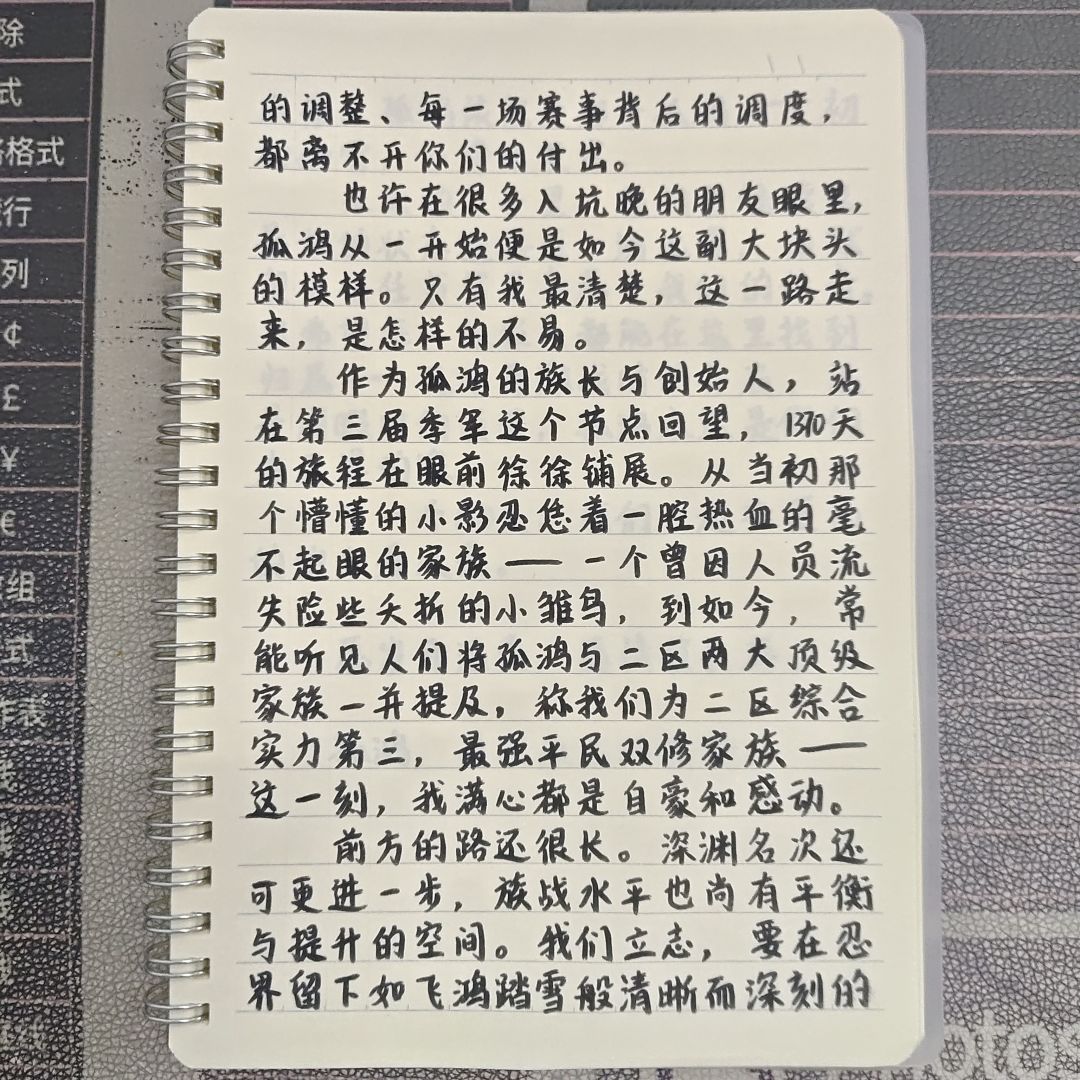 的调整、每一场赛事背后的调度，
都离不开你们的付出。
也许在很多入坑晚的朋友眼里，
孤鸿从一开始便是如今这副大块头
的模样。只有我最清楚，这一路走
来，是怎样的不易。
作为孤鸿的族长与创始人，站
在第三届季军这个节点回望，1370天
的旅程在眼前徐徐铺展。从当初那
个懵懂的小影忍凭着一腔热血的毫
不起眼的家族——一个曾因人员流
失险些夭折的小雏鸟，到如今，常
能听见人们将孤鸿与二区两大顶级
家族一并提及，称我们为二区综合
实力第三，最强平民双修家族——
这一刻，我满心都是自豪和感动。
前方的路还很长。深渊名次还
可更进一步，族战水平也尚有平衡
与提升的空间。我们立志，要在忍
界留下如飞鸿踏雪般清晰而深刻的
除
式
格式
行
列
¢
£
¥
€
组
式
作表